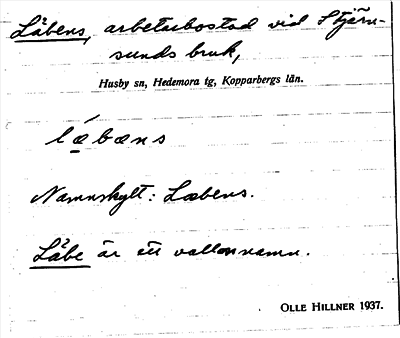 Läbens, arbetarbostad vid Stjärn-
sunds bruk,
Husby sn, Hedemora tg, Kopparbergs län.
lǽbæns
Namnskylt: Læbens.
Läbe är ett vallonnamn.
OLLE HILLNER 1937.